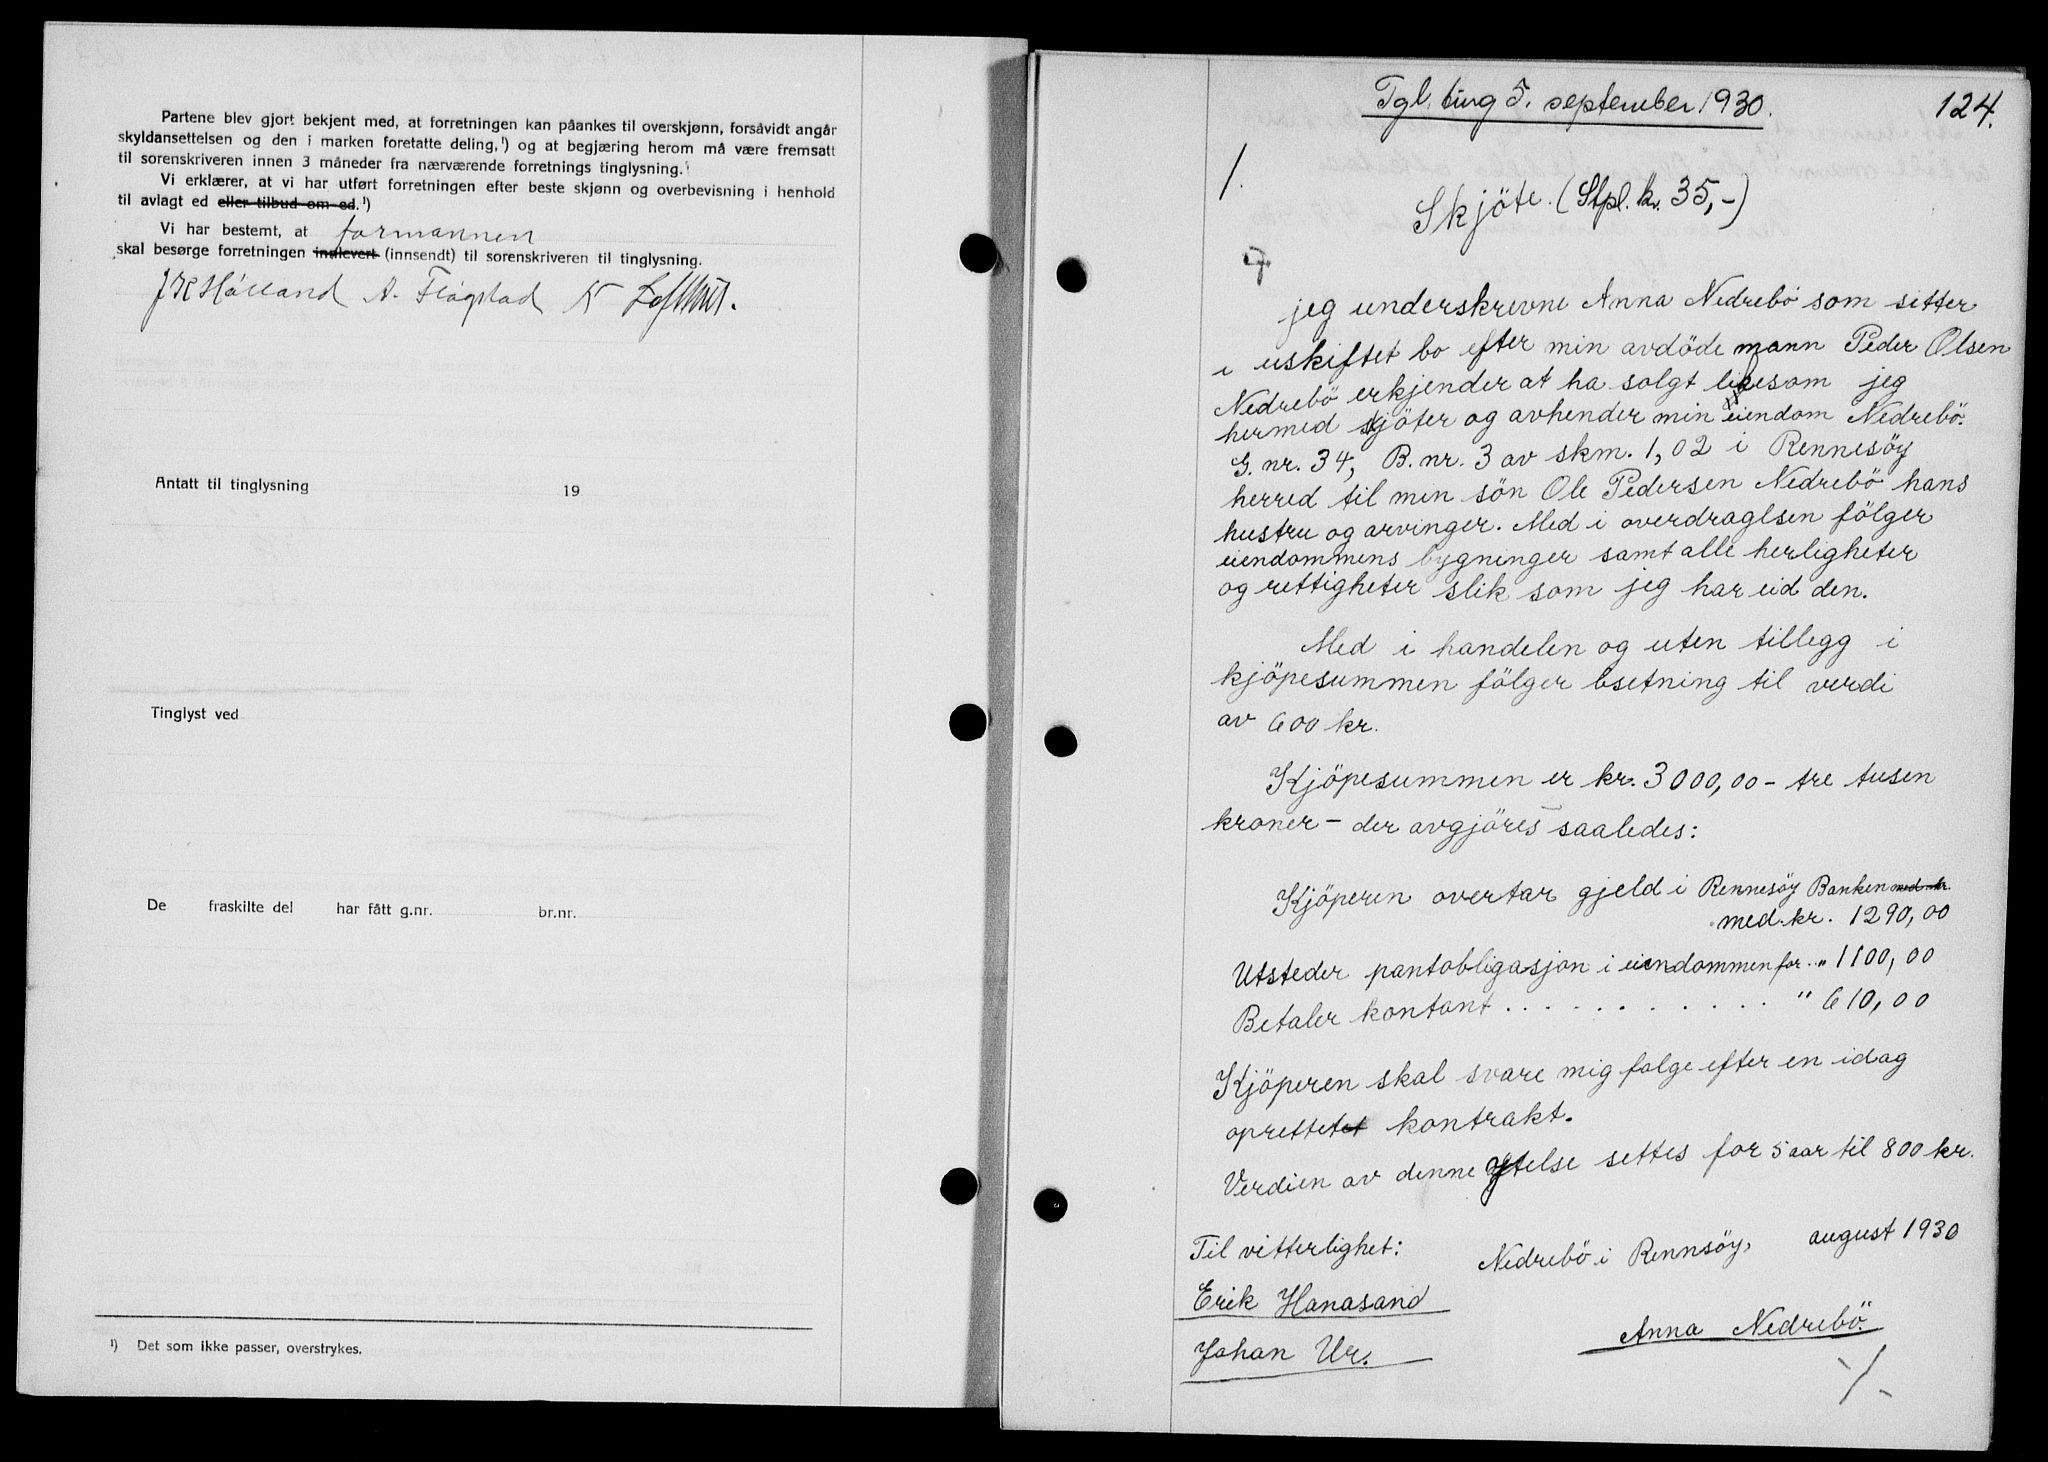 Partene blev gjort bekjent med, at forretningen kan påankes til overskjønn, forsåvidt angår
skyldansettelsen og den i marken foretatte deling,¹) og at begjæring herom må være fremsatt
til sorenskriveren innen 3 måneder fra nærværende forretnings tinglysning.¹
Vi erklærer, at vi har utført forretningen efter beste skjønn og overbevisning i henhold
til avlagt ed eller tilbud om ed.¹)
Vi har bestemt, at formannen
skal besørge forretningen innlevert (innsendt) til sorenskriveren til tinglysning.
Hålland A. Flogstad
Antatt til tinglysning 19
Tinglyst ved
De fraskilte del har fått g.nr. br.nr.
¹) Det som ikke passer, overstrykes.
Tgl. ting 5. september 1930. 124.
1.
Skjöte. (Stpl. kr. 35,-)
jeg underskrevne Anna Nedrebö som sitter
i uskiftet bo efter min avdöde mann Peder Olsen
Nedrebö erkjender at ha solgt likesom jeg
hermed skjöter og avhender min eiendom Nedrebö.
G. nr. 34, B. nr. 3 av skm. 1,02 i Rennesöy
herred til min sön Ole Pedersen Nedrebö hans
hustru og arvinger. Med i overdraglsen fölger
eiendommens bygninger samt alle herligheter
og rettigheter slik som jeg har eid den.
Med i handelen og uten tillegg i
kjöpesummen fölger bsetning til verdi
av 600 kr.
Kjöpesummen er kr. 3000,00 - tre tusen
kroner - der avgjöres saaledes:
Kjöperen overtar gjeld i Rennesöy Banken med kr.
med kr. 1290,00
Utsteder pantobligasjon i eiendommen for.. " 1100,00
Betaler kontant . . . . . . . . . . " 610,00
Kjöperen skal svare mig folge efter en idag
oprettetet kontrakt.
Verdien av denne ytelse settes for 5 aar til 800 kr.
Til vitterlighet: Nedrebö i Rennsöy, august 1930
Erik Hanasand
Anna Nedrebö.
Johan Ur.